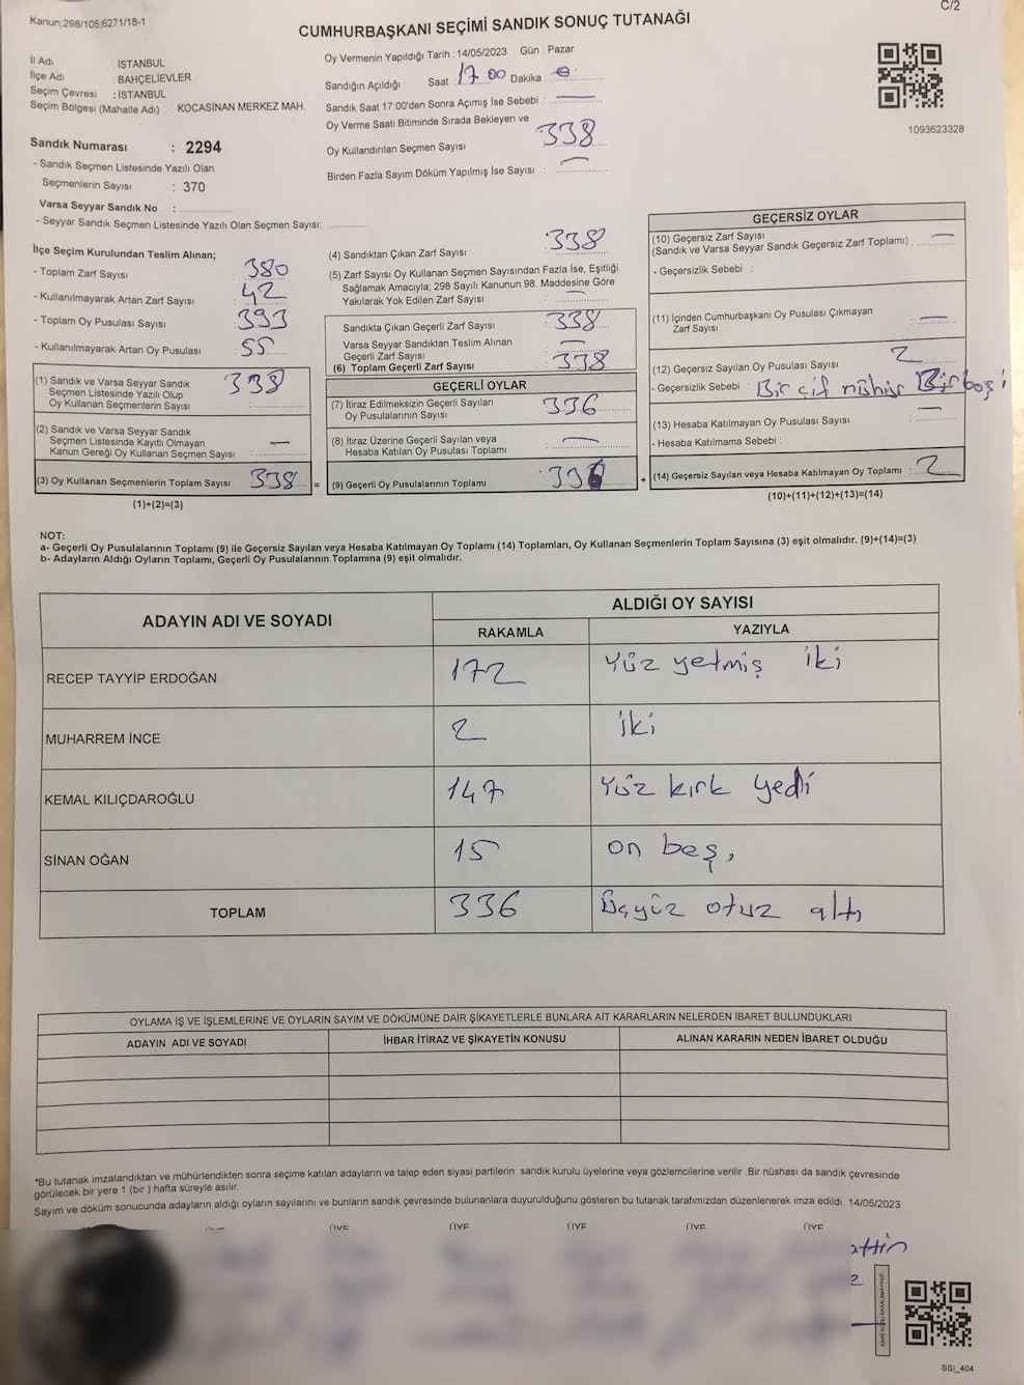 Kanun:298/105;6271/18-1
C/2
CUMHURBAŞKANI SEÇİMİ SANDIK SONUÇ TUTANAĞI
İl Adı İSTANBUL
İlçe Adı BAHÇELİEVLER
Seçim Çevresi : İSTANBUL
Seçim Bölgesi (Mahalle Adı) KOCASİNAN MERKEZ MAH.
Sandık Numarası : 2294
- Sandık Seçmen Listesinde Yazılı Olan
Seçmenlerin Sayısı : 370
Varsa Seyyar Sandık No :
- Seyyar Sandık Seçmen Listesinde Yazılı Olan Seçmen Sayısı:
Oy Vermenin Yapıldığı Tarih : 14/05/2023 Gün : Pazar
Sandığın Açıldığı Saat 17 00 Dakika
Sandık Saat 17:00'den Sonra Açımış İse Sebebi :
Oy Verme Saati Bitiminde Sırada Bekleyen ve
Oy Kullandırılan Seçmen Sayısı 338
Birden Fazla Sayım Döküm Yapılmış İse Sayısı :
1093623328
İlçe Seçim Kurulundan Teslim Alınan;
- Toplam Zarf Sayısı 380
- Kullanılmayarak Artan Zarf Sayısı 42
- Toplam Oy Pusulası Sayısı 393
- Kullanılmayarak Artan Oy Pusulası 55
(1) Sandık ve Varsa Seyyar Sandık 338
Seçmen Listesinde Yazılı Olup
Oy Kullanan Seçmenlerin Sayısı
(2) Sandık ve Varsa Seyyar Sandık
Seçmen Listesinde Kayıtlı Olmayan
Kanun Gereği Oy Kullanan Seçmen Sayısı
(3) Oy Kullanan Seçmenlerin Toplam Sayısı 338 =
(1)+(2)=(3)
(4) Sandıktan Çıkan Zarf Sayısı 338
(5) Zarf Sayısı Oy Kullanan Seçmen Sayısından Fazla İse, Eşitliği
Sağlamak Amacıyla; 298 Sayılı Kanunun 98. Maddesine Göre
Yakılarak Yok Edilen Zarf Sayısı :
Sandıkta Çıkan Geçerli Zarf Sayısı 338
Varsa Seyyar Sandıktan Teslim Alınan
Geçerli Zarf Sayısı
(6) Toplam Geçerli Zarf Sayısı 338
GEÇERLİ OYLAR
(7) İtiraz Edilmeksizin Geçerli Sayılan 336
Oy Pusulalarının Sayısı
(8) İtiraz Üzerine Geçerli Sayılan veya
Hesaba Katılan Oy Pusulası Toplamı
(9) Geçerli Oy Pusulalarının Toplamı : 336 +
GEÇERSİZ OYLAR
(10) Geçersiz Zarf Sayısı
(Sandık ve Varsa Seyyar Sandık Geçersiz Zarf Toplamı)
- Geçersizlik Sebebi :
(11) İçinden Cumhurbaşkanı Oy Pusulası Çıkmayan
Zarf Sayısı
(12) Geçersiz Sayılan Oy Pusulası Sayısı 2
- Geçersizlik Sebebi : Bir çif mühür Bir boş
(13) Hesaba Katılmayan Oy Pusulası Sayısı
- Hesaba Katılmama Sebebi :
(14) Geçersiz Sayılan veya Hesaba Katılmayan Oy Toplamı : 2
(10)+(11)+(12)+(13)=(14)
NOT:
a- Geçerli Oy Pusulalarının Toplamı (9) ile Geçersiz Sayılan veya Hesaba Katılmayan Oy Toplamı (14) Toplamları, Oy Kullanan Seçmenlerin Toplam Sayısına (3) eşit olmalıdır. (9)+(14)=(3)
b- Adayların Aldığı Oyların Toplamı, Geçerli Oy Pusulalarının Toplamına (9) eşit olmalıdır.
ADAYIN ADI VE SOYADI ALDIĞI OY SAYISI
RAKAMLA YAZIYLA
RECEP TAYYİP ERDOĞAN 172 Yüz yetmiş iki
MUHARREM İNCE 2 iki
KEMAL KILIÇDAROĞLU 147 Yüz kırk yedi
SİNAN OĞAN 15 on beş,
TOPLAM 336 Üçyüz otuz altı
OYLAMA İŞ VE İŞLEMLERİNE VE OYLARIN SAYIM VE DÖKÜMÜNE DAİR ŞİKAYETLERLE BUNLARA AİT KARARLARIN NELERDEN İBARET BULUNDUKLARI
ADAYIN ADI VE SOYADI İHBAR İTİRAZ VE ŞİKAYETİN KONUSU ALINAN KARARIN NEDEN İBARET OLDUĞU
*Bu tutanak imzalandıktan ve mühürlendikten sonra seçime katılan adayların ve talep eden siyasi partilerin sandık kurulu üyelerine veya gözlemcilerine verilir. Bir nüshası da sandık çevresinde
görülecek bir yere 1 (bir) hafta süreyle asılır.
Sayım ve döküm sonucunda adayların aldığı oyların sayılarını ve bunların sandık çevresinde bulunanlara duyurulduğunu gösteren bu tutanak tarafımızdan düzenlenerek imza edildi. 14/05/2023
ÜYE ÜYE ÜYE ÜYE ÜYE
attin
2
SSI_404